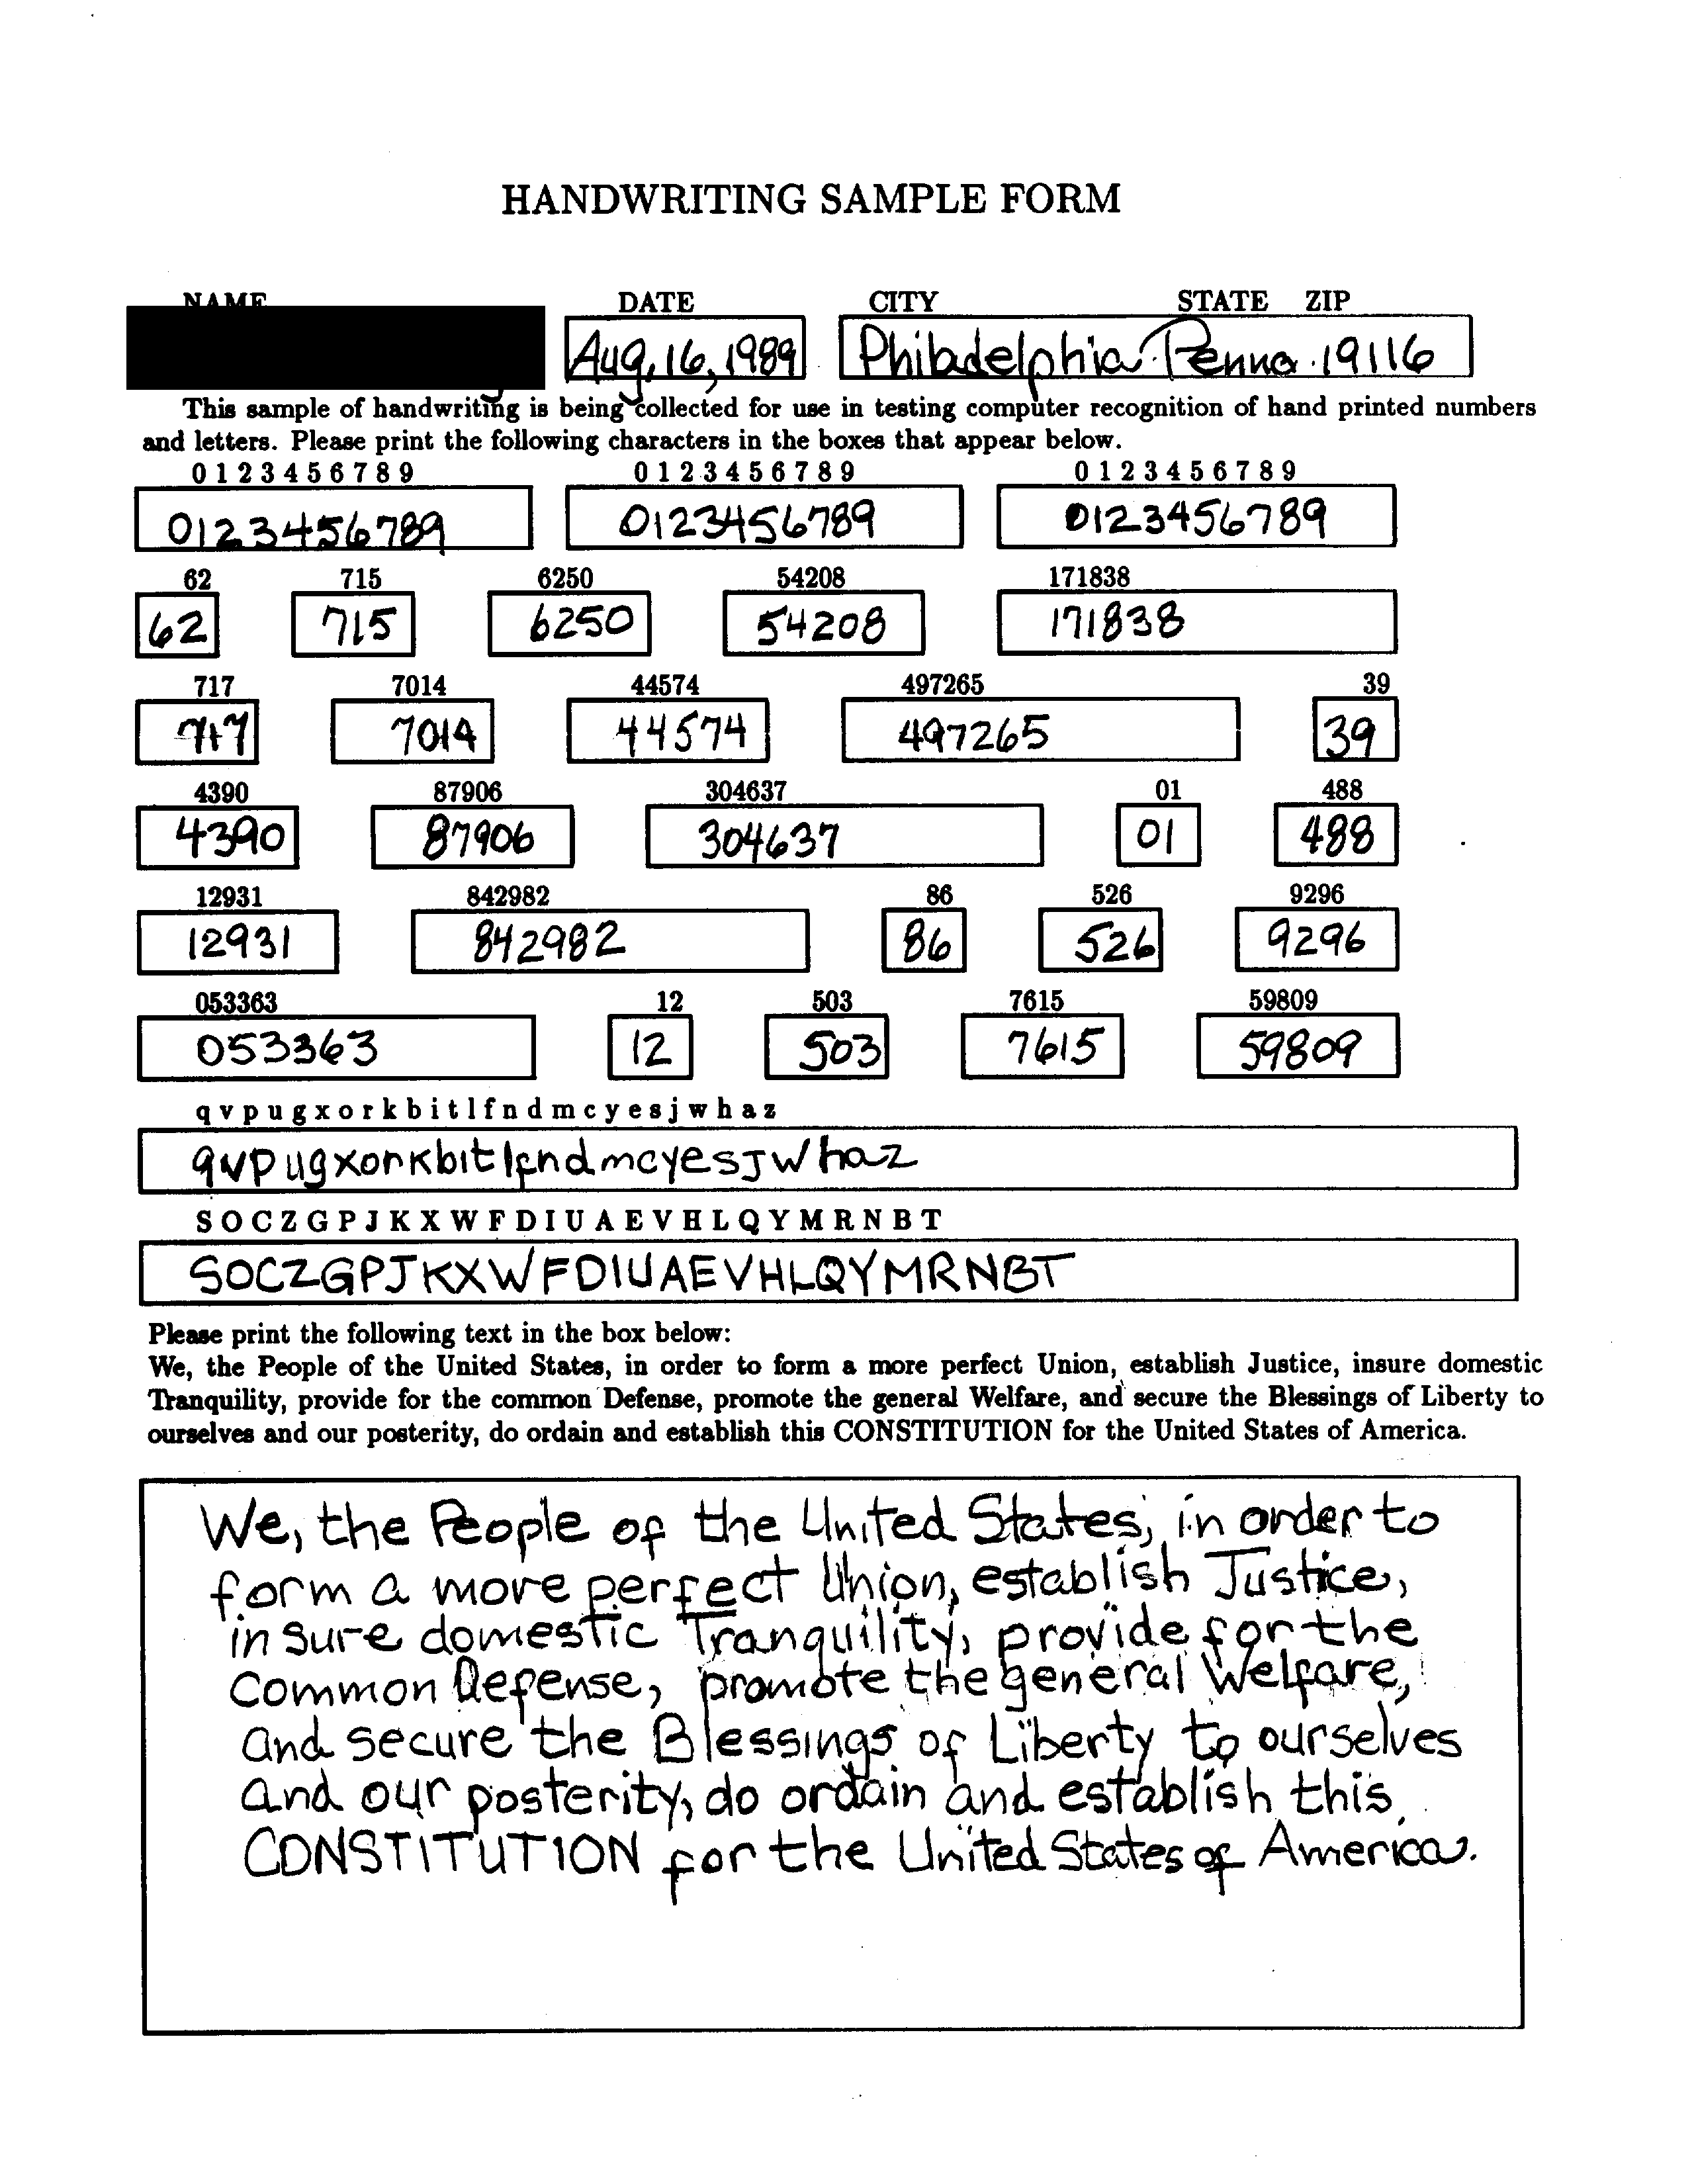 HANDWRITING SAMPLE FORM
NAME DATE CITY STATE ZIP
Aug, 16, 1989 Philadelphia Penna. 19116
This sample of handwriting is being collected for use in testing computer recognition of hand printed numbers
and letters. Please print the following characters in the boxes that appear below.
0 1 2 3 4 5 6 7 8 9 0 1 2 3 4 5 6 7 8 9 0 1 2 3 4 5 6 7 8 9
0123456789 0123456789 0123456789
62 715 6250 54208 171838
62 715 6250 54208 171838
717 7014 44574 497265 39
717 7014 44574 497265 39
4390 87906 304637 01 488
4390 87906 304637 01 488
12931 842982 86 526 9296
12931 842982 86 526 9296
053363 12 503 7615 59809
053363 12 503 7615 59809
q v p u g x o r k b i t l f n d m c y e s j w h a z
qvpugxorkbitlfndmcyesjwhaz
S O C Z G P J K X W F D I U A E V H L Q Y M R N B T
SOCZGPJKXWFDIUAEVHLQYMRNBT
Please print the following text in the box below:
We, the People of the United States, in order to form a more perfect Union, establish Justice, insure domestic
Tranquility, provide for the common Defense, promote the general Welfare, and secure the Blessings of Liberty to
ourselves and our posterity, do ordain and establish this CONSTITUTION for the United States of America.
We, the People of the United States, in order to
form a more perfect Union, establish Justice,
insure domestic Tranquility, provide for the
Common Defense, promote the general Welfare,
and secure the Blessings of Liberty to ourselves
and our posterity, do ordain and establish this
CONSTITUTION for the United States of America.